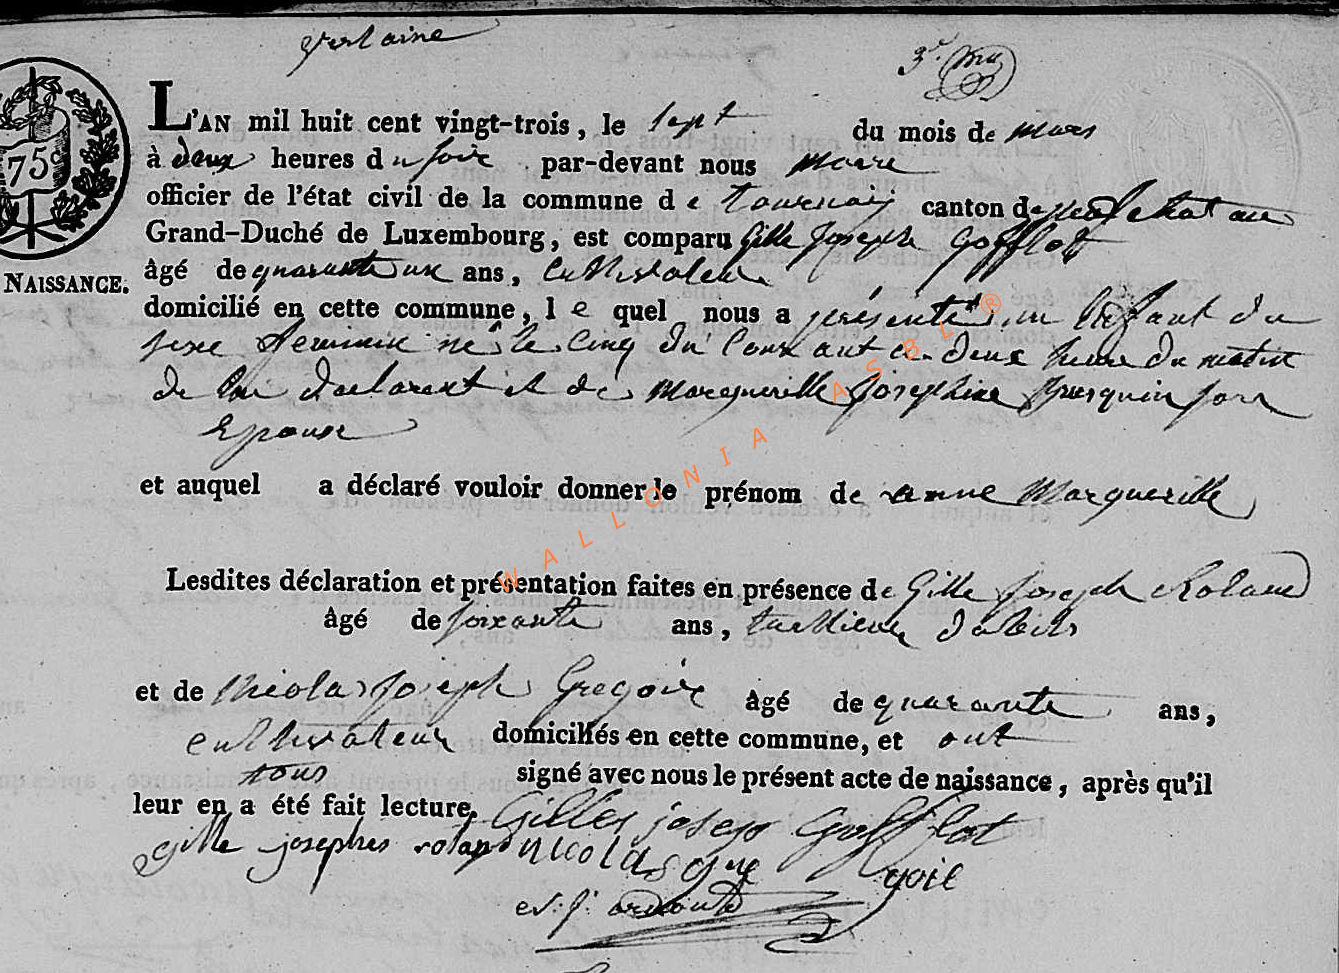 Verlaine
3e
L'AN mil huit cent vingt-trois, le sept du mois de mars
à deux heures du soir par-devant nous maire
officier de l'état civil de la commune de tournay canton de neufchatau
Grand-Duché de Luxembourg, est comparu Gille Joseph Gofflot
âgé de quarante un ans, cultivateur
domicilié en cette commune, le quel nous a présenté un Enfant du
sexe feminin né le cinq du Courant a deux heure du matin
de lui declarent et de Marguerille Josephine son
Epouse
et auquel a déclaré vouloir donner le prénom de anne Marguerille
Lesdites déclaration et présentation faites en présence de Gille Joseph Roland
âgé de soixante ans, tallieur dabits
et de Nicolas Joseph Gregoire âgé de quarante ans,
cultivateur domiciliés en cette commune, et ont
tous signé avec nous le présent acte de naissance, après qu'il
leur en a été fait lecture. Gilles joseph Gofflot
gille josephes roland nicolas gregoire
75c
NAISSANCE.
WALLONIA ASBL®